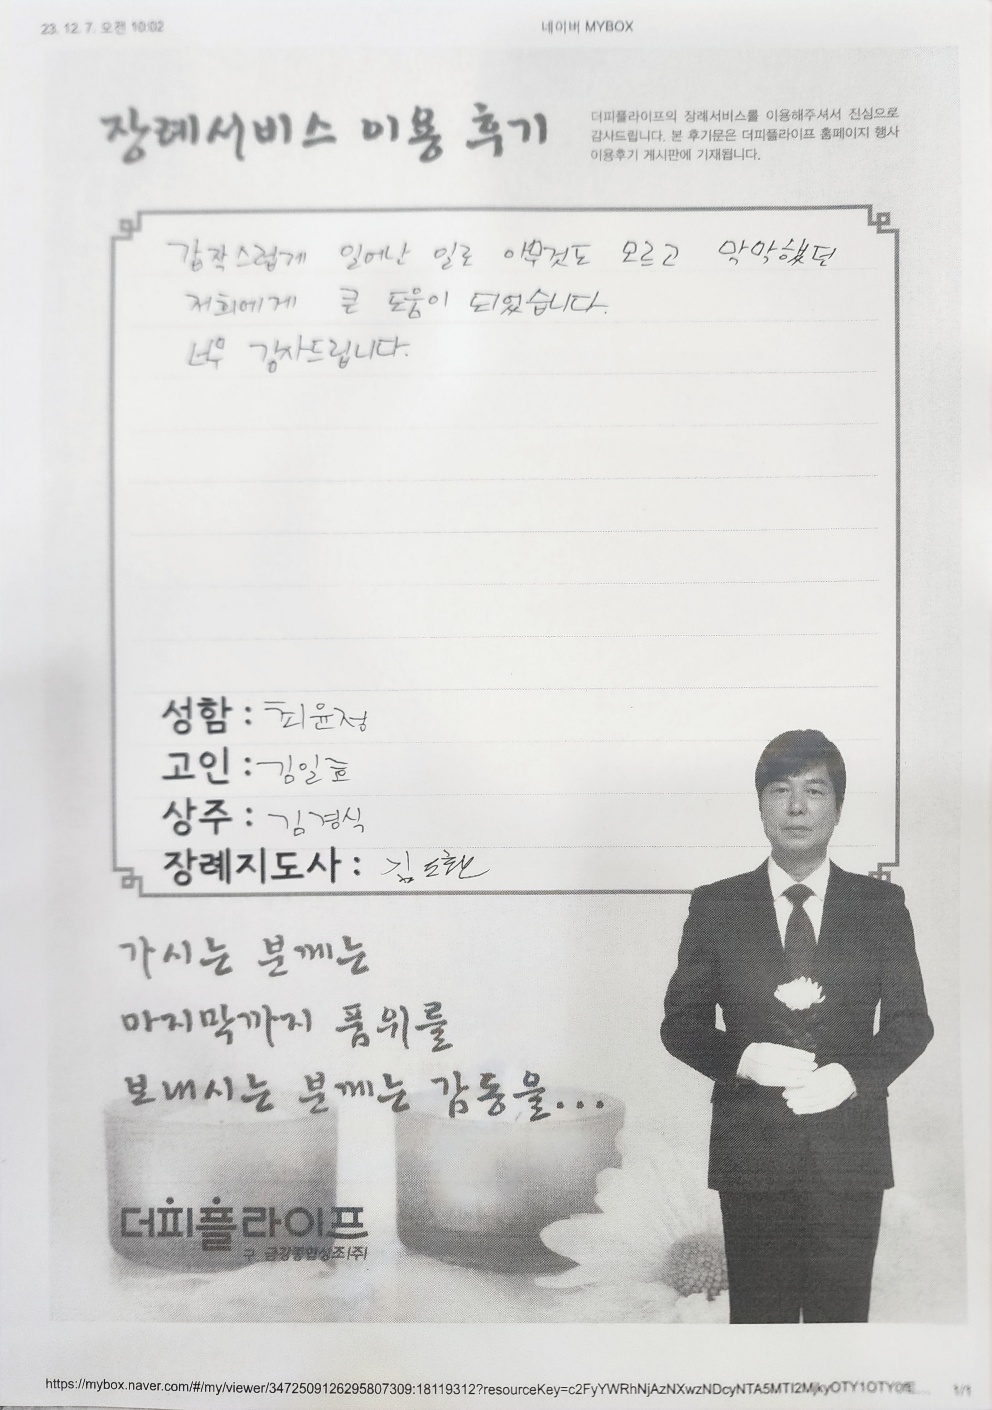 23. 12. 7. 오전 10:02
네이버 MYBOX
장례서비스 이용 후기
더피플라이프의 장례서비스를 이용해주셔서 진심으로
감사드립니다. 본 후기문은 더피플라이프 홈페이지 행사
이용후기 게시판에 기재됩니다.
갑작스럽게 일어난 일로 아무것도 모르고 막막했던
저희에게 큰 도움이 되었습니다.
너무 감사드립니다.
성함 : 최윤정
고인 : 김일효
상주 : 김경식
장례지도사 : 김도환
가시는 분께는
마지막까지 품위를
보내시는 분께는 감동을...
더피플라이프
구 금강종합상조(주)
https://mybox.naver.com/#/my/viewer/3472509126295807309:18119312?resourceKey=c2FyYWRhNjAzNXwzNDcyNTA5MTI2MjkyOTY1OTY0fE...
1/1